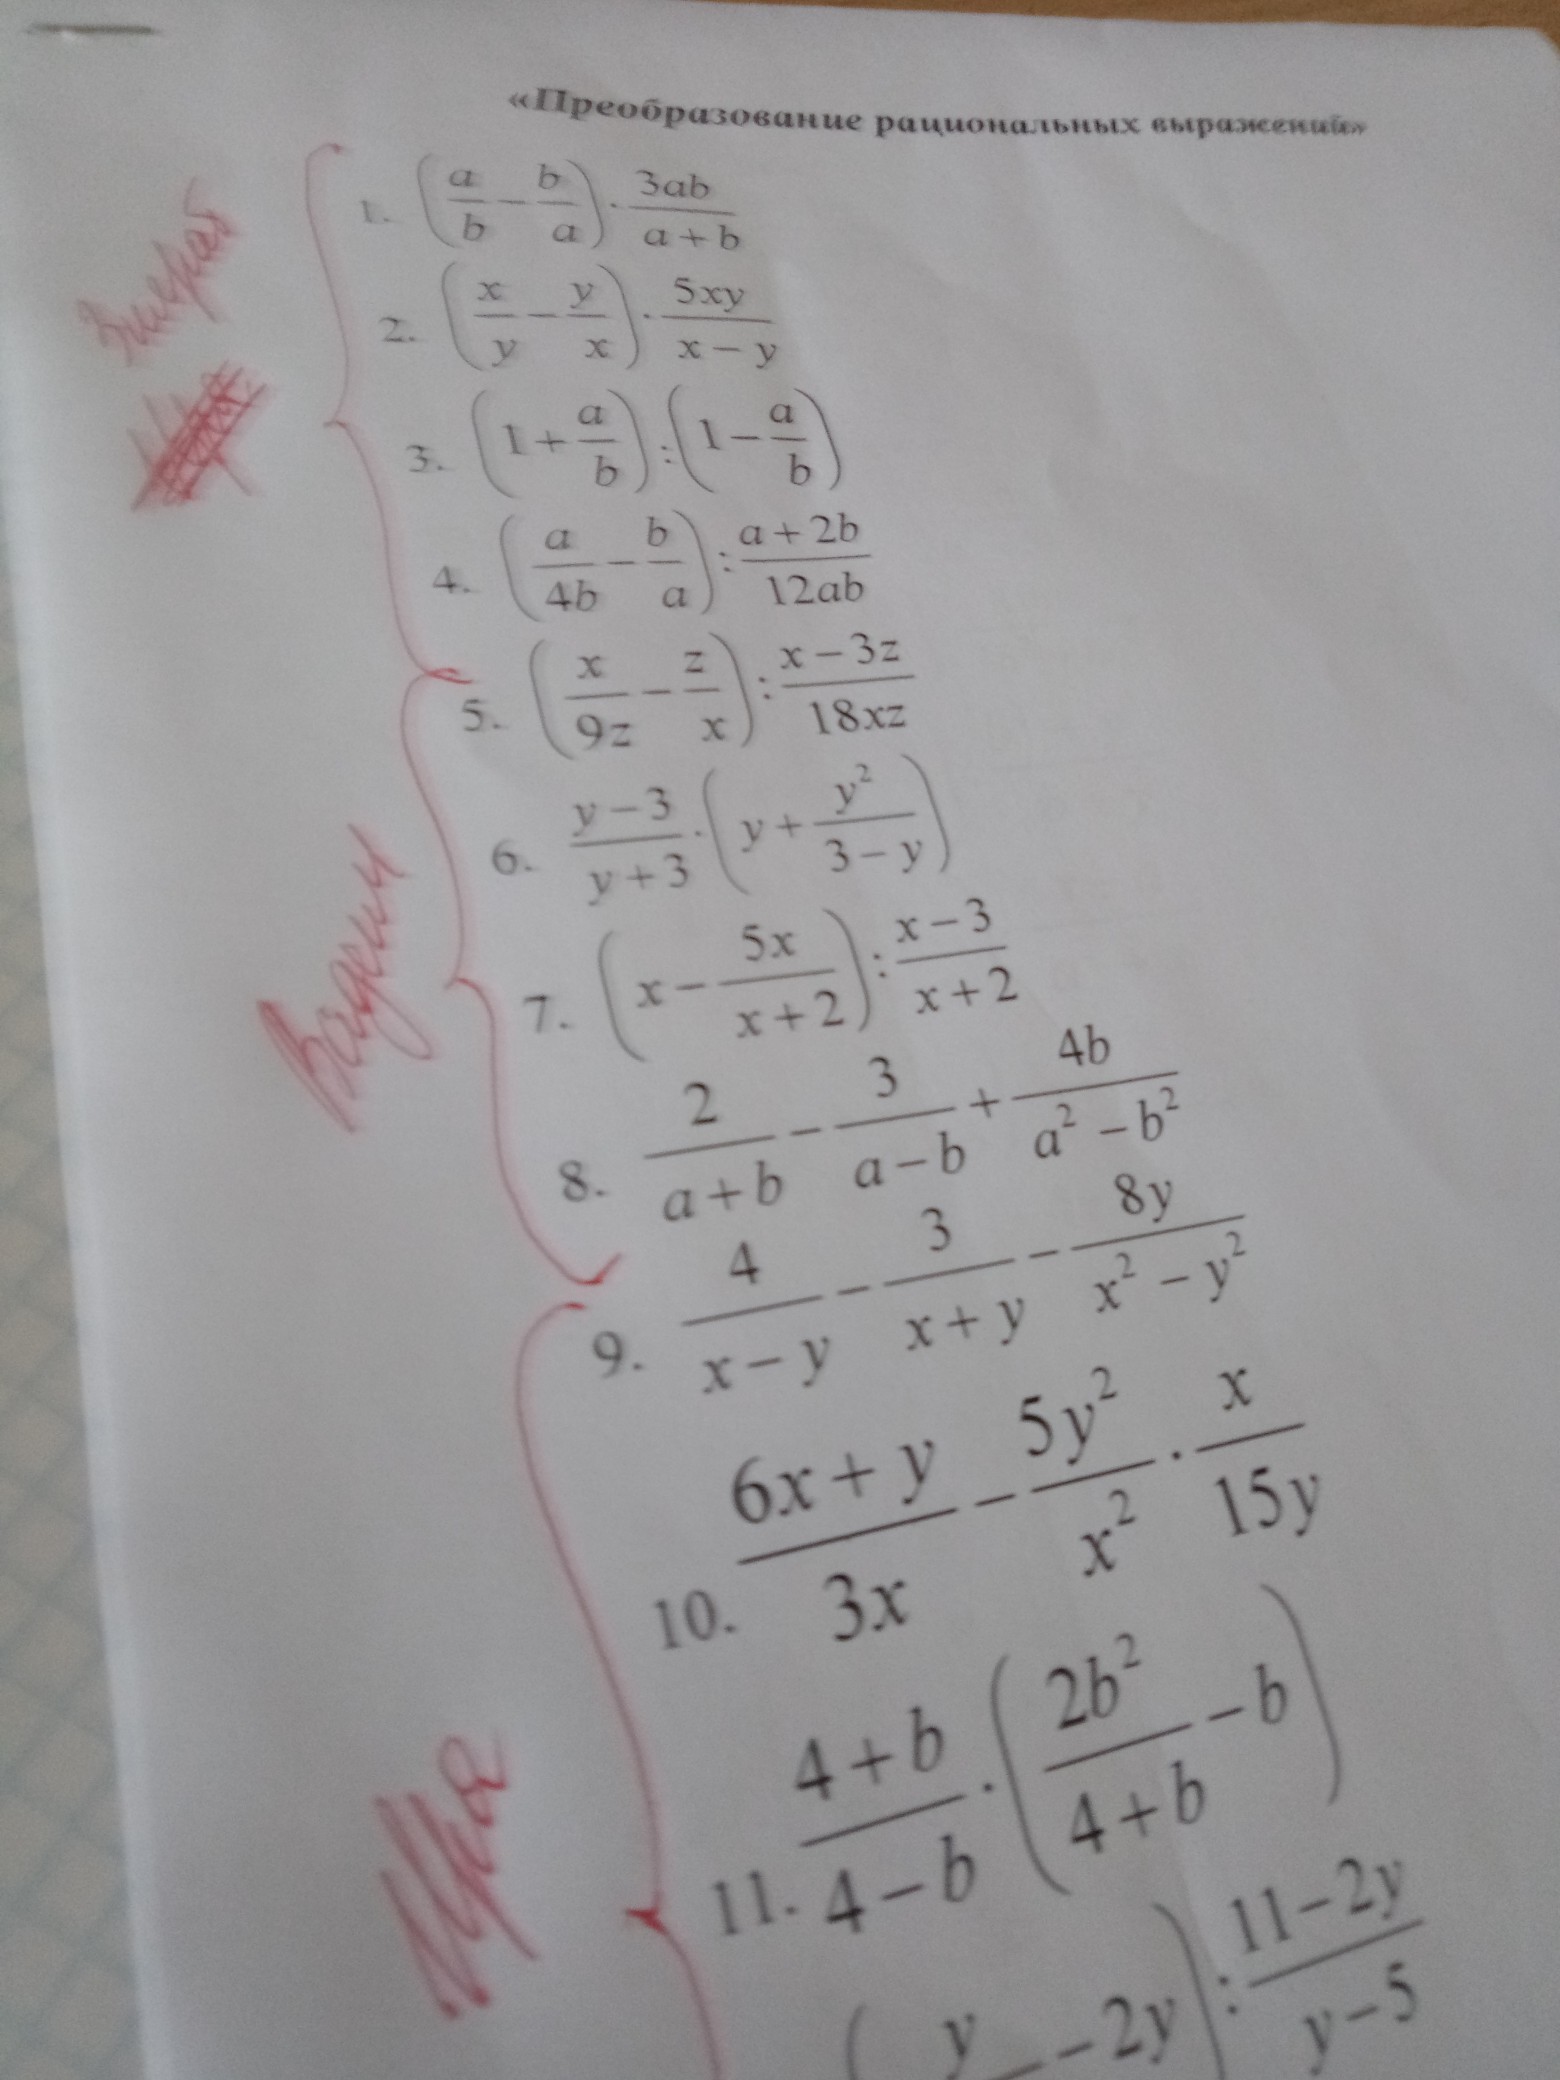 «Преобразование рациональных выражений»
1. (a/b − b/a) · 3ab/(a + b)
2. (x/y − y/x) · 5xy/(x − y)
3. (1 + a/b) : (1 − a/b)
4. (a/4b − b/a) : (a + 2b)/12ab
5. (x/9z − z/x) : (x − 3z)/18xz
6. (y − 3)/(y + 3) · (y + y²/(3 − y))
7. (x − 5x/(x + 2)) : (x − 3)/(x + 2)
Вадим
8. 2/(a + b) − 3/(a − b) + 4b/(a² − b²)
9. 4/(x − y) − 3/(x + y) − 8y/(x² − y²)
10. (6x + y)/3x − 5y²/x² · x/15y
11. (4 + b)/(4 − b) · (2b²/(4 + b) − b)
(y − 2y) : (11 − 2y)/(y − 5)